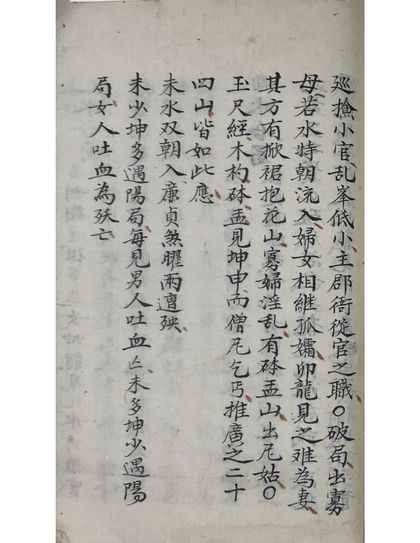 巡撿小官乱峯低小主郡衙從官之職〇破局出寡
母若水特朝流入婦女相継孤孀卯龍見之难為妻
其方有掀裙抱花山寡婦淫乱有砵盂山出尼姑〇
玉尺經木杓砵盂見坤申而僧尼乞丐推廣之二十
四山皆如此應
未水双朝入廉貞煞曜兩遭殃
未少坤多遇陽局每見男人吐血亡未多坤少遇陽
局女人吐血為殀亡